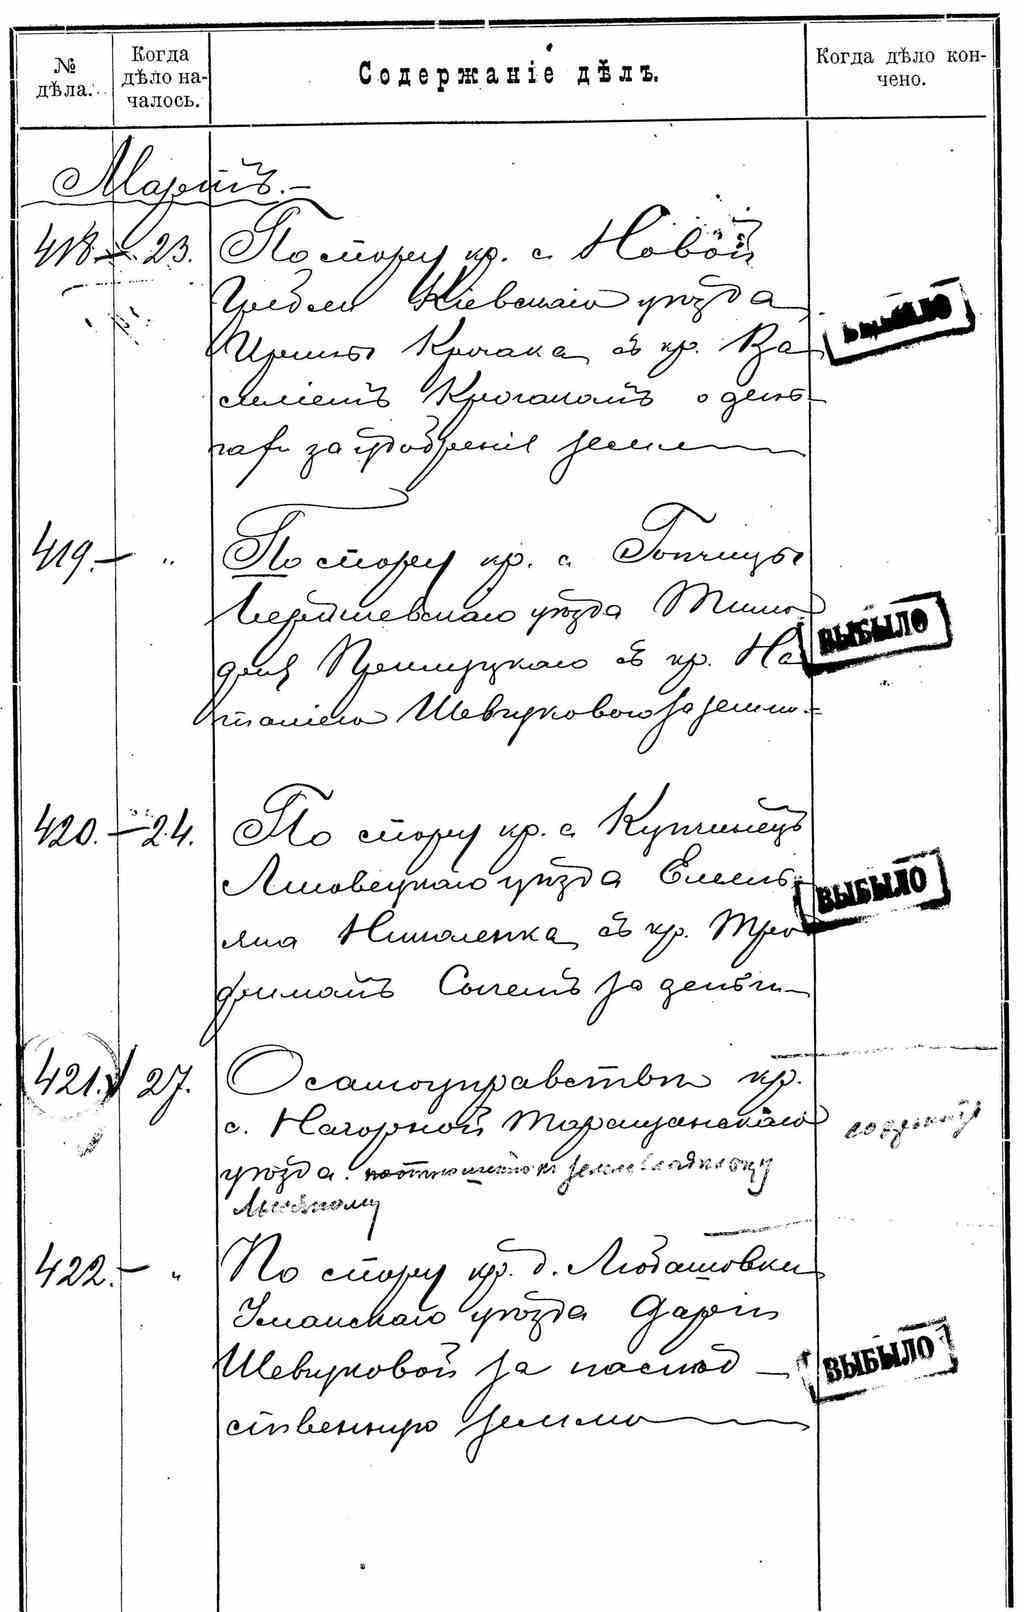 № дѣла.
Когда дѣло на-чалось.
Содержаніе дѣлъ.
Когда дѣло кон-чено.
Мартъ.-
418.- 23. По спору кр. с. Новой
Гребли Кіевскаго уѣзда
Крочака съ кр. Ва-
силіемъ Крочакомъ о день-
гахъ за удобреніе земли
ВЫБЫЛО
419.- " По спору кр. с. Гопчицы
Бердичевскаго уѣзда Тимо-
фея Прилуцкаго съ кр. На-
таліею Шевчуковою за землю.=
ВЫБЫЛО
420.- 24. По спору кр. с. Купчинецъ
Липовецкаго уѣзда Емель-
яна Николенка съ кр. Тро-
фимомъ за деньги
ВЫБЫЛО
421. 27. О самоуправствѣ кр.
с. Нагорной Таращанскаго
уѣзда. землевладѣльцу
422.- " По спору кр. д. Любашовки
Уманскаго уѣзда Дарьи
Шевчуковой за наслѣд-
ственную землю
ВЫБЫЛО